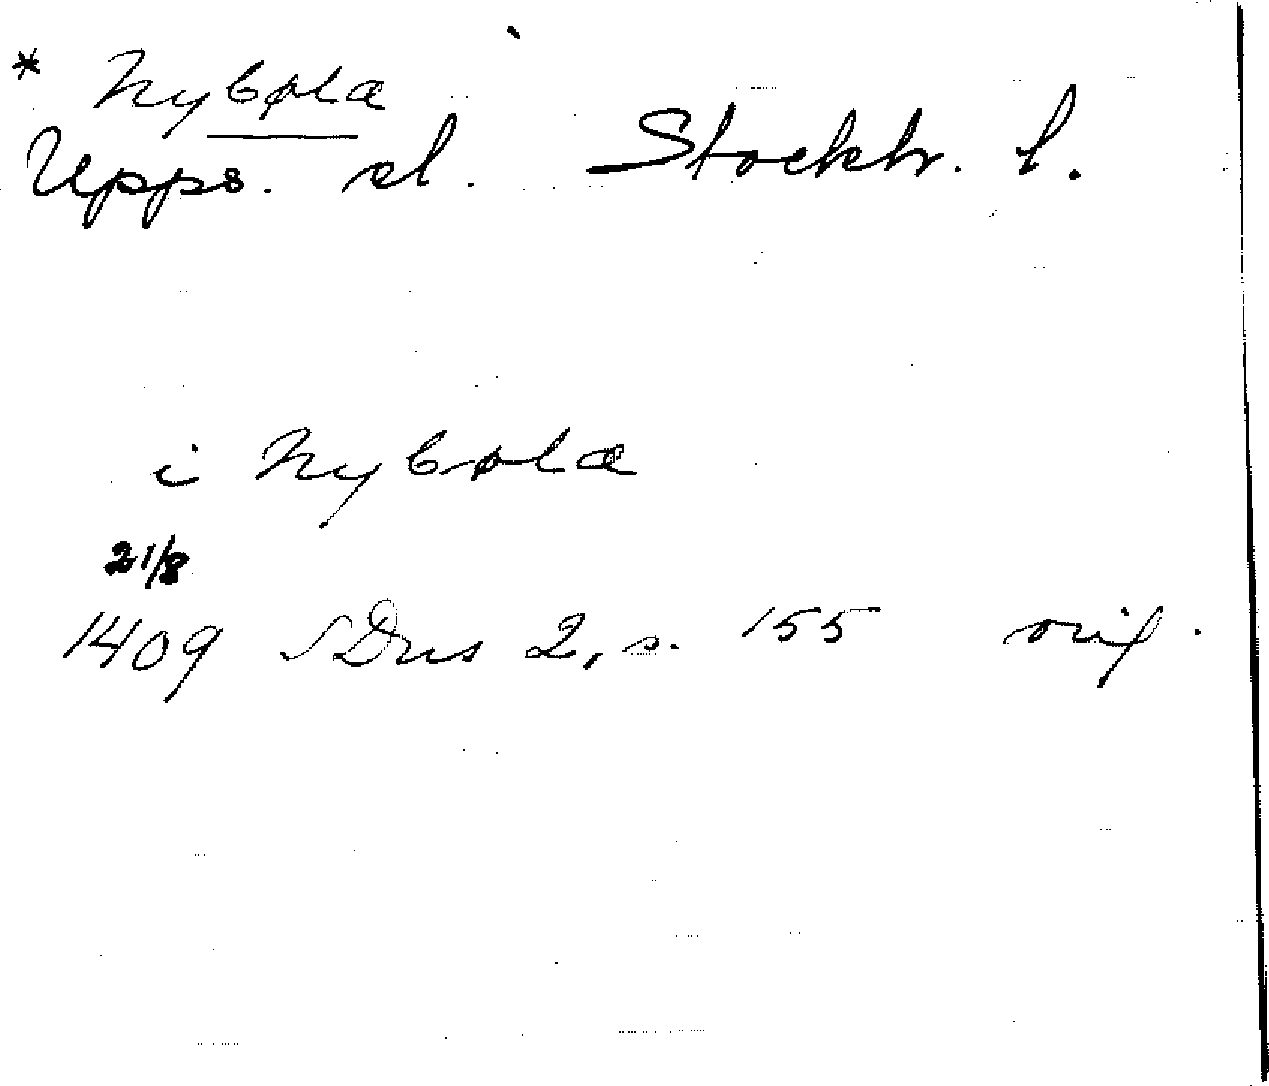 * Nybøla
Upps. sl. Stockh. l.
i Nybøla
21/8
1409 SDns 2, s. 155 orig.